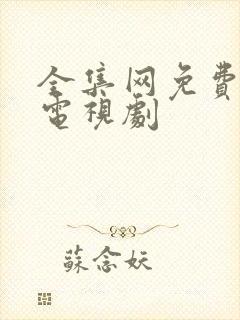 全集网免費
電視劇
蘇念妖